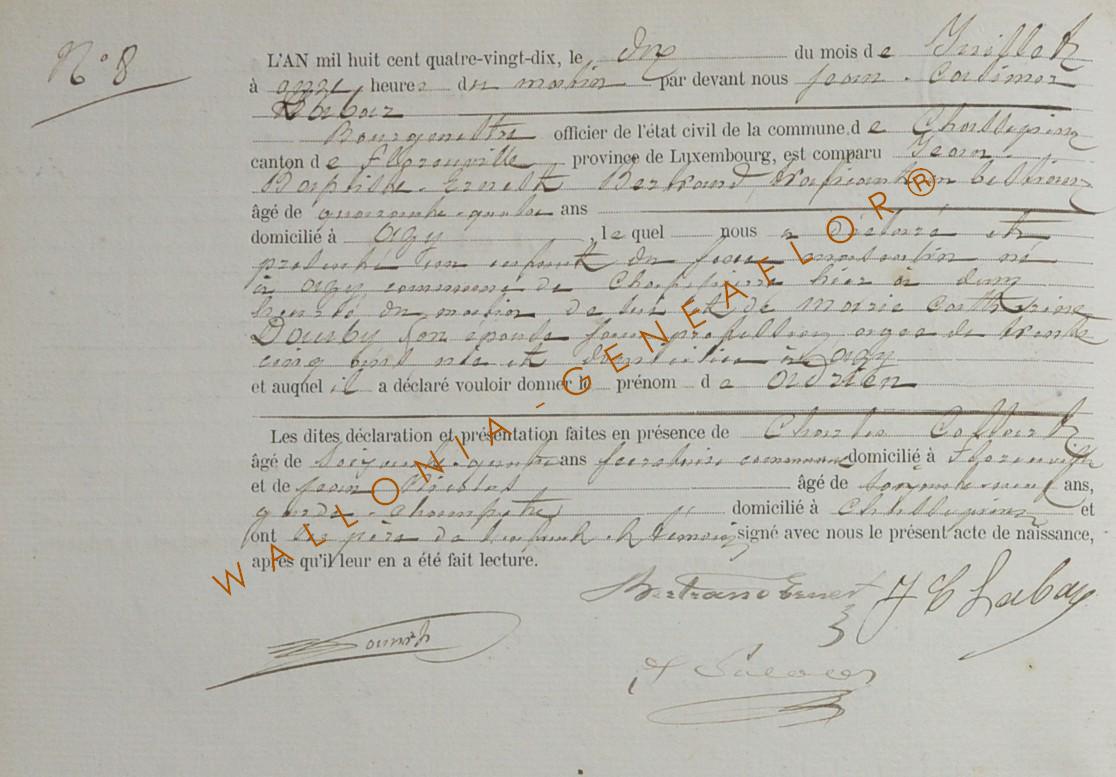 N° 8
L'AN mil huit cent quatre-vingt-dix, le dix du mois de Juillet
à onze heures du matin par devant nous Jean - Casimir
Labar
Bourgmestre officier de l'état civil de la commune de Chassepierre
canton de Florenville province de Luxembourg, est comparu Jean
Baptiste Ernest Bertrand, trafiquant en bestiaux
âgé de quarante-quatre ans
domicilié à Azy, lequel nous a déclaré et
présenté un enfant du sexe masculin né
à Azy commune de Chassepierre hier à
heures du matin de lui et de Marie Catherine
son épouse sans profession, agée de trente
cinq ans née et domiciliée à Azy
et auquel il a déclaré vouloir donner le prénom de Adrien
Les dites déclaration et présentation faites en présence de Charles
âgé de soixante-quatre ans secrétaire communal domicilié à Florenville
et de Jean Nicolas âgé de ans,
garde-champêtre domicilié à Chassepierre et
ont le père de l'enfant et témoins signé avec nous le présent acte de naissance,
après qu'il leur en a été fait lecture.
Bertrand Ernest J C Labar
WALLONIA - GENEAFLOR®